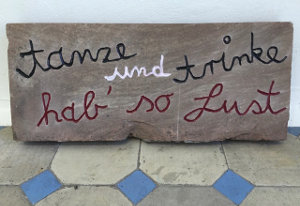 tanze und trinke
hab' so Lust